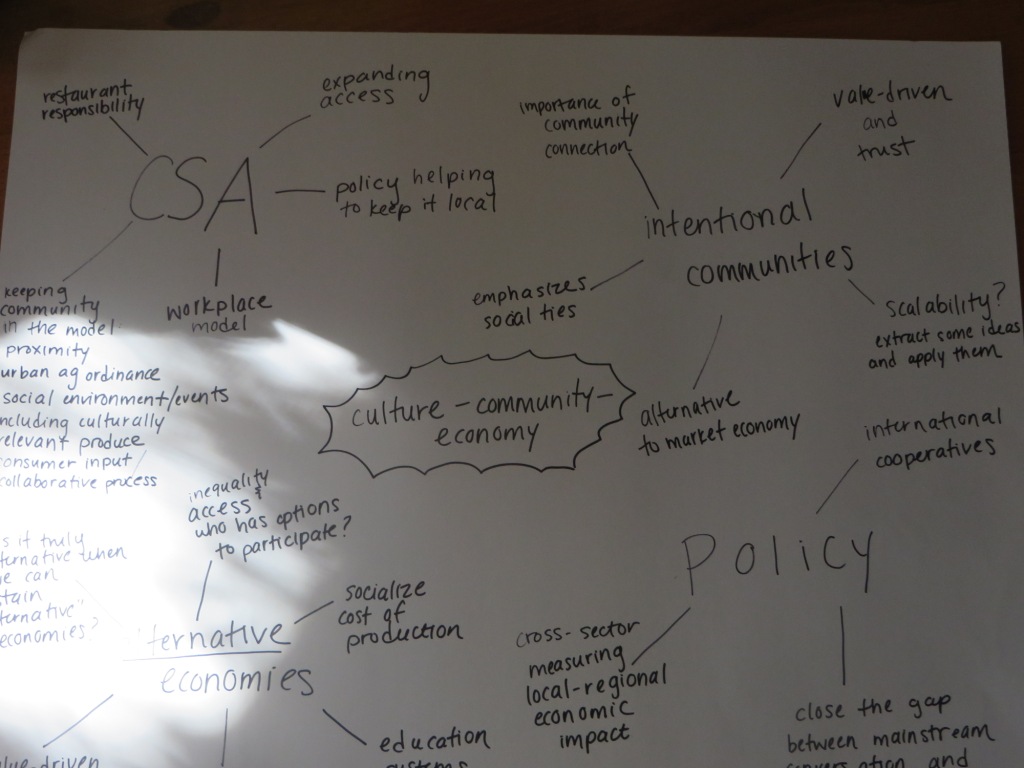 restaurant
responsibility
expanding
access
CSA
policy helping
to keep it local
workplace
model
keeping
community
in the model
proximity
urban ag ordinance
social environment/events
ncluding culturally
relevant produce
onsumer input
ollaborative process
importance of
community
connection
value-driven
and
trust
intentional
communities
emphasizes
social ties
scalability?
extract some ideas
and apply them
alternative
to market economy
culture - community -
economy
inequality
access &
who has options
to participate?
s it truly
ternative when
e can
tain
ternative"
economies?
ternative
economies
socialize
cost of
production
education
systems
lue-driven
international
cooperatives
Policy
cross-sector
measuring
local-regional
economic
impact
close the gap
between mainstream
and